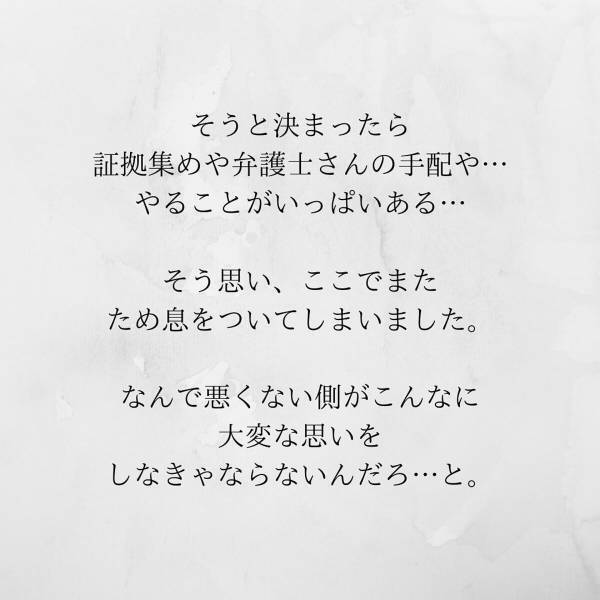 そうと決まったら
証拠集めや弁護士さんの手配や…
やることがいっぱいある…
そう思い、ここでまた
ため息をついてしまいました。
なんで悪くない側がこんなに
大変な思いを
しなきゃならないんだろ…と。